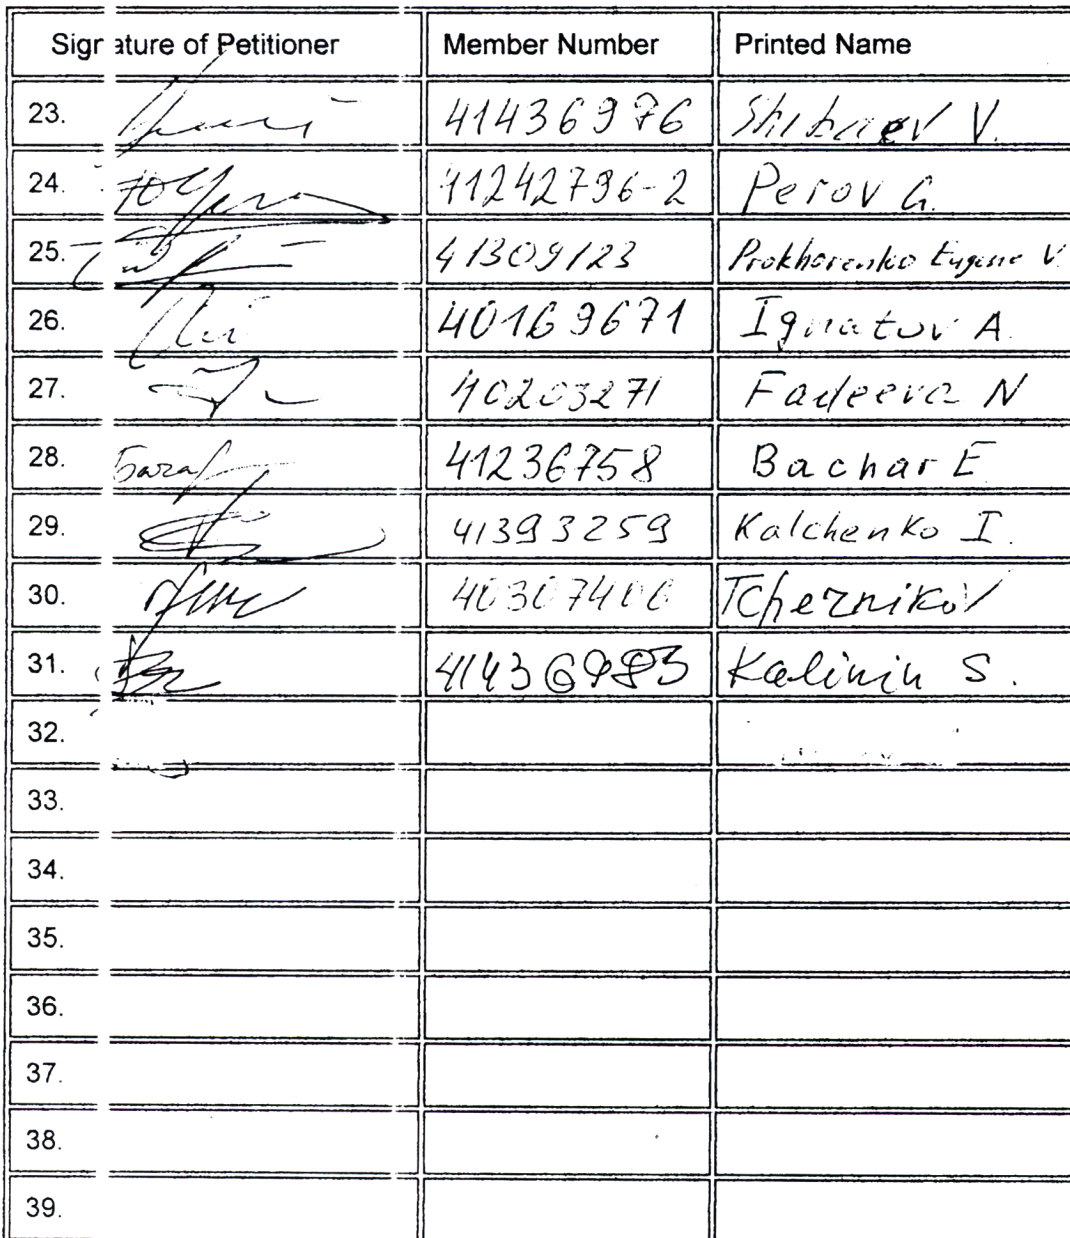 Signature of Petitioner Member Number Printed Name
23. 41436976 Shibaev V.
24. 41242796-2 Perov G.
25. 41309123 Prokhorenko Eugene V.
26. 40169671 Ignatov A.
27. 40203271 Fadeeva N
28. 41236758 Bachar E
29. 41393259 Kalchenko I.
30. 40307406 Tchernikov
31. 41436983 Kalinin S.
32.
33.
34.
35.
36.
37.
38.
39.